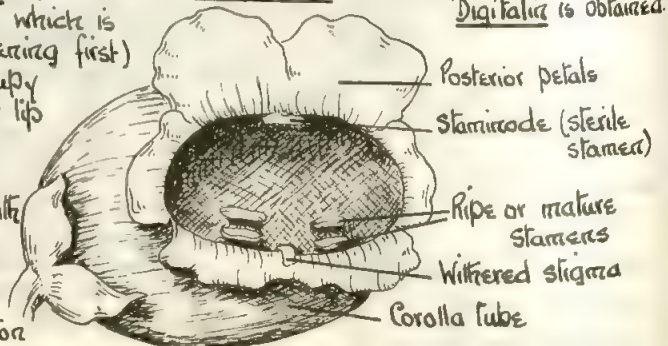 which is
ening first)
upy
lip
lth
on
Digitalin is obtained.
Posterior petals
Staminode (sterile
stamen)
Ripe or mature
stamens
Withered stigma
Corolla tube